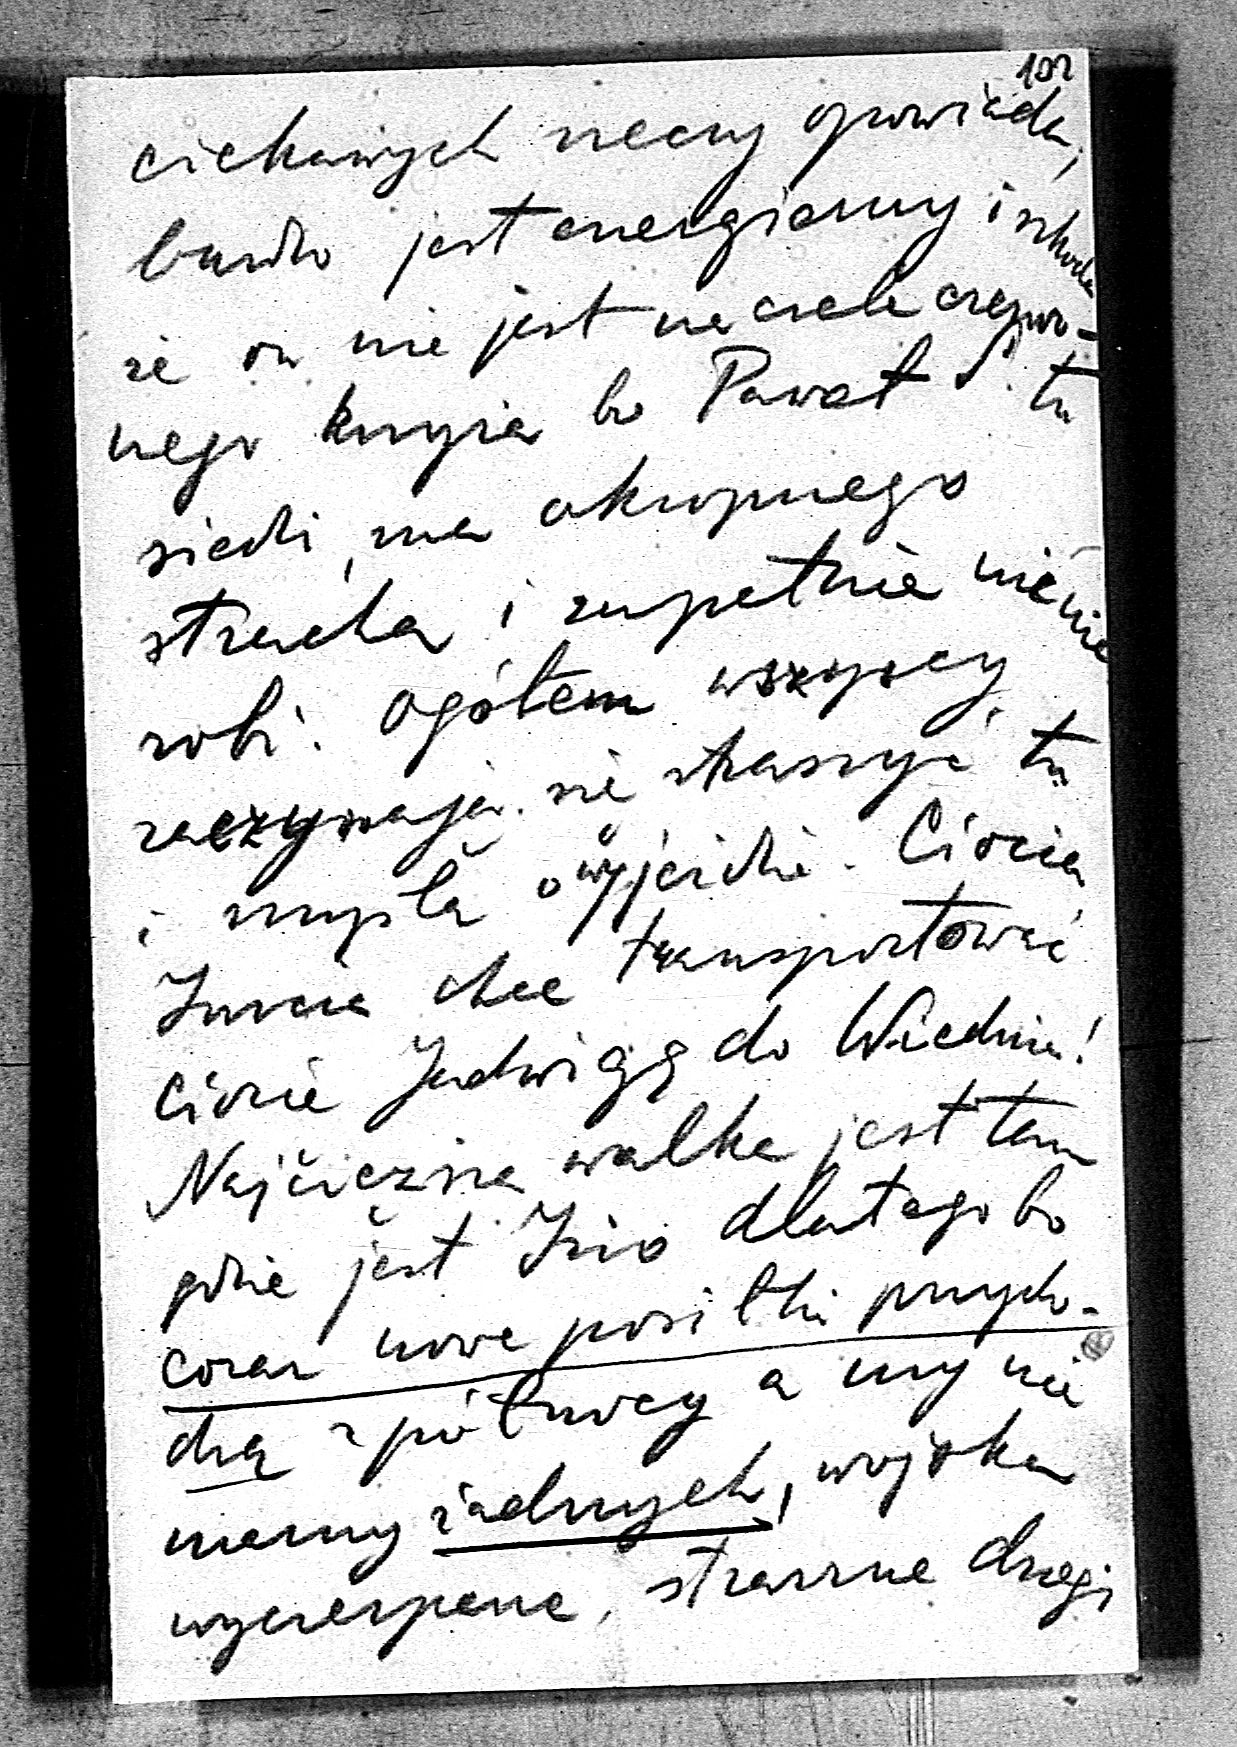 102
ciekawych rzeczy opowiada,
bardzo jest energiczny i szkoda
że on nie jest na czele czerwo-
nego krzyża bo Paweł S. tu
siedzi, ma okropnego
stracha i zupełnie nic nie
robi. Ogółem wszyscy
zaczynają się straszyć tu
i myślą o wyjeździe. Ciocia
Inrcia chce transportować
ciocię Jadwigę do Wiednia!
Najcięższa walka jest tam
gdzie jest Izio dlatego bo
coraz nowe posiłki przycho-
dzą z północy a my nie
mamy żadnych, wojska
wyczerpane, straszne drogi